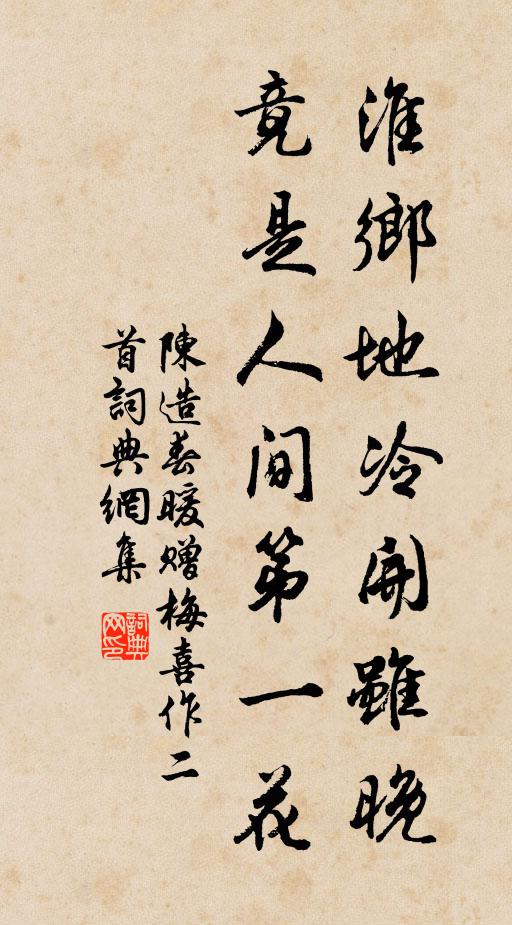 淮鄉地冷開雖晚
竟是人間第一花
陳造春暖贈梅喜作二
首詞典網集
詞典网印